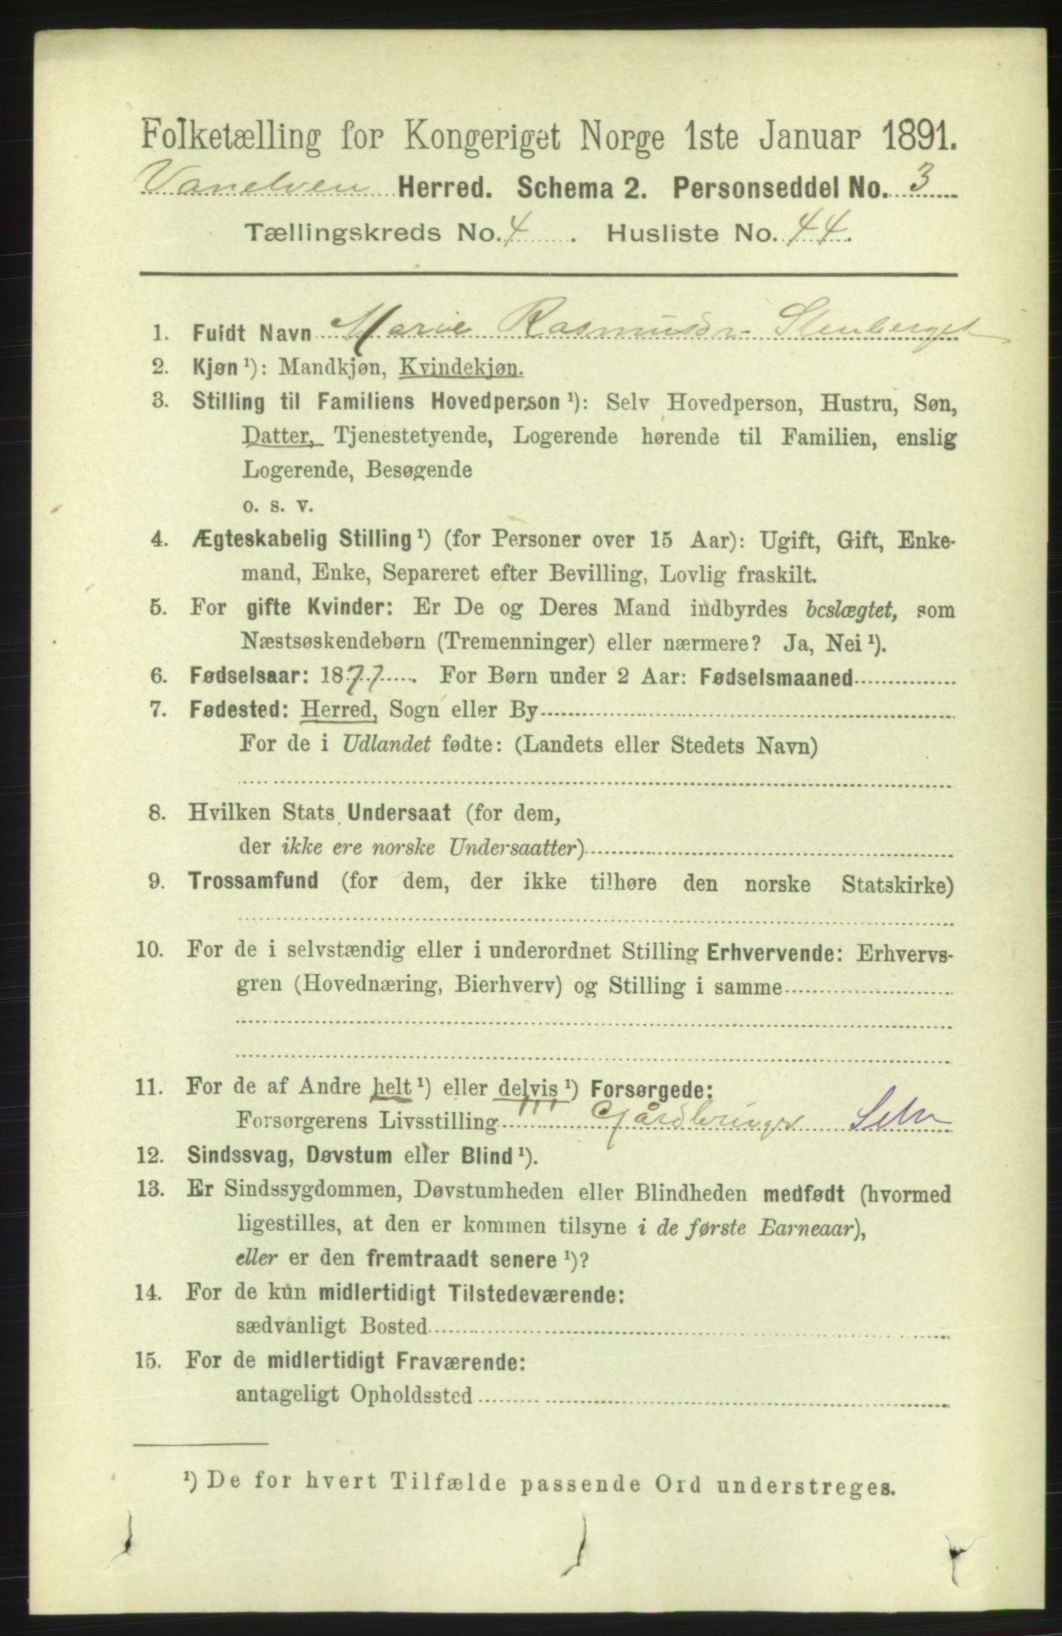 Folketælling for Kongeriget Norge 1ste Januar 1891.
Vanelven Herred. Schema 2. Personseddel No. 3
Tællingskreds No. 4. Husliste No. 44.
1. Fuldt Navn Marie Rasmusdr. Stenberget
2. Kjøn ¹): Mandkjøn, Kvindekjøn.
3. Stilling til Familiens Hovedperson ¹): Selv Hovedperson, Hustru, Søn,
Datter, Tjenestetyende, Logerende hørende til Familien, enslig
Logerende, Besøgende
o. s. v.
4. Ægteskabelig Stilling ¹) (for Personer over 15 Aar): Ugift, Gift, Enke-
mand, Enke, Separeret efter Bevilling, Lovlig fraskilt.
5. For gifte Kvinder: Er De og Deres Mand indbyrdes beslægtet, som
Næstsøskendebørn (Tremenninger) eller nærmere? Ja, Nei ¹).
6. Fødselsaar: 1877. For Børn under 2 Aar: Fødselsmaaned
7. Fødested: Herred, Sogn eller By
For de i Udlandet fødte: (Landets eller Stedets Navn)
8. Hvilken Stats Undersaat (for dem,
der ikke ere norske Undersaatter)
9. Trossamfund (for dem, der ikke tilhøre den norske Statskirke)
10. For de i selvstændig eller i underordnet Stilling Erhvervende: Erhvervs-
gren (Hovednæring, Bierhverv) og Stilling i samme
11. For de af Andre helt ¹) eller delvis ¹) Forsørgede:
Forsørgerens Livsstilling Gårdbruger Selv
12. Sindssvag, Døvstum eller Blind ¹).
13. Er Sindssygdommen, Døvstumheden eller Blindheden medfødt (hvormed
ligestilles, at den er kommen tilsyne i de første Barneaar),
eller er den fremtraadt senere ¹)?
14. For de kun midlertidigt Tilstedeværende:
sædvanligt Bosted
15. For de midlertidigt Fraværende:
antageligt Opholdssted
¹) De for hvert Tilfælde passende Ord understreges.